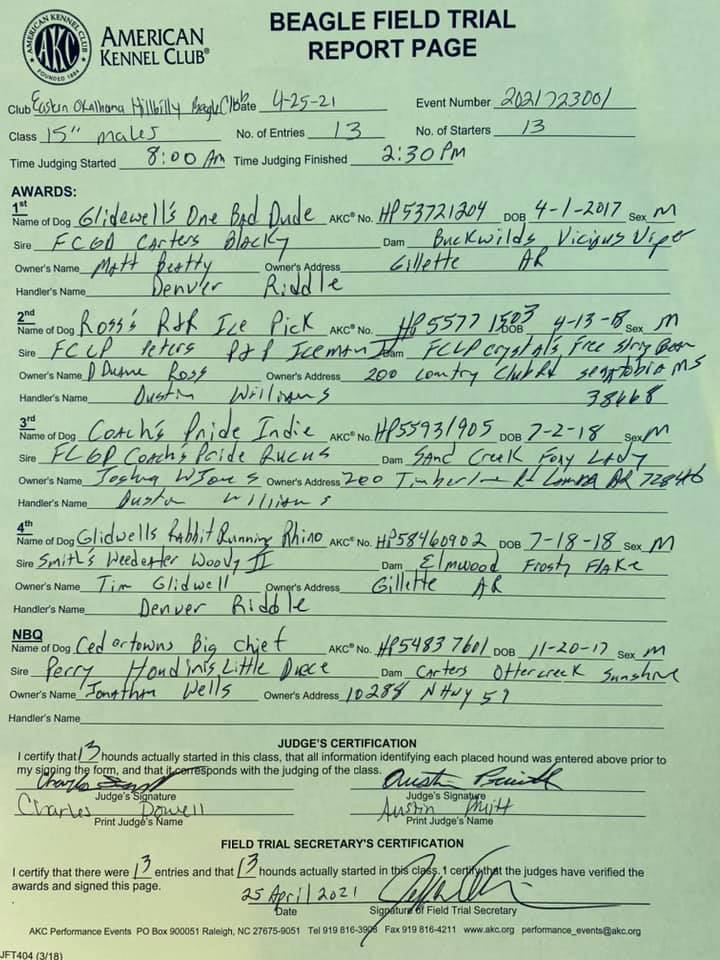 AMERICAN KENNEL CLUB
AKC
FOUNDED 1884
AMERICAN
KENNEL CLUB®
BEAGLE FIELD TRIAL
REPORT PAGE
Club Eastern Oklahoma Hillbilly Beagle Club Date 4-25-21 Event Number 2021723001
Class 15" males No. of Entries 13 No. of Starters 13
Time Judging Started 8:00 Am Time Judging Finished 2:30 PM
AWARDS:
1st
Name of Dog Glidewell's One Bad Dude AKC® No. HP53721204 DOB 4-1-2017 Sex M
Sire FCGD Carters Blacky Dam Buckwilds Vicious Viper
Owner's Name Matt Beatty Owner's Address Gillette AR
Handler's Name Denver Riddle
2nd
Name of Dog Ross's R&R Ice Pick AKC® No. HP55771503 DOB 4-13-18 Sex M
Sire FCLP Peters P&P Iceman Dam FCLP Crystal's Free
Owner's Name D Duane Ross Owner's Address 200 Country Club Rd Senatobia MS
Handler's Name Dustin Williams 38668
3rd
Name of Dog Coach's Pride Indie AKC® No. HP55931905 DOB 7-2-18 Sex M
Sire FCGP Coach's Pride Rucus Dam Sand Creek Foxy Lady
Owner's Name Joshua W Jones Owner's Address 200 Timberline Rd AR 72846
Handler's Name Dustin Williams
4th
Name of Dog Glidwells Rabbit Running Rhino AKC® No. HP58460902 DOB 7-18-18 Sex M
Sire Smith's Weedeater Woody II Dam Elmwood Frosty Flake
Owner's Name Tim Glidwell Owner's Address Gillette AR
Handler's Name Denver Riddle
NBQ
Name of Dog Cedartowns Big Chief AKC® No. HP54837601 DOB 11-20-17 Sex M
Sire Perry Houdinis Little Dam Carters Ottercreek Sunshine
Owner's Name Jonathan Wells Owner's Address 10288 N Hwy 59
Handler's Name
JUDGE'S CERTIFICATION
I certify that 13 hounds actually started in this class, that all information identifying each placed hound was entered above prior to
my signing the form, and that it corresponds with the judging of the class.
Charles
Austin
Judge's Signature Judge's Signature
Charles Powell Austin
Print Judge's Name Print Judge's Name
FIELD TRIAL SECRETARY'S CERTIFICATION
I certify that there were 13 entries and that 13 hounds actually started in this class. I certify that the judges have verified the
awards and signed this page.
25 April 2021
Date Signature of Field Trial Secretary
AKC Performance Events PO Box 900051 Raleigh, NC 27675-9051 Tel 919 816-3908 Fax 919 816-4211 www.akc.org performance_events@akc.org
JFT404 (3/18)